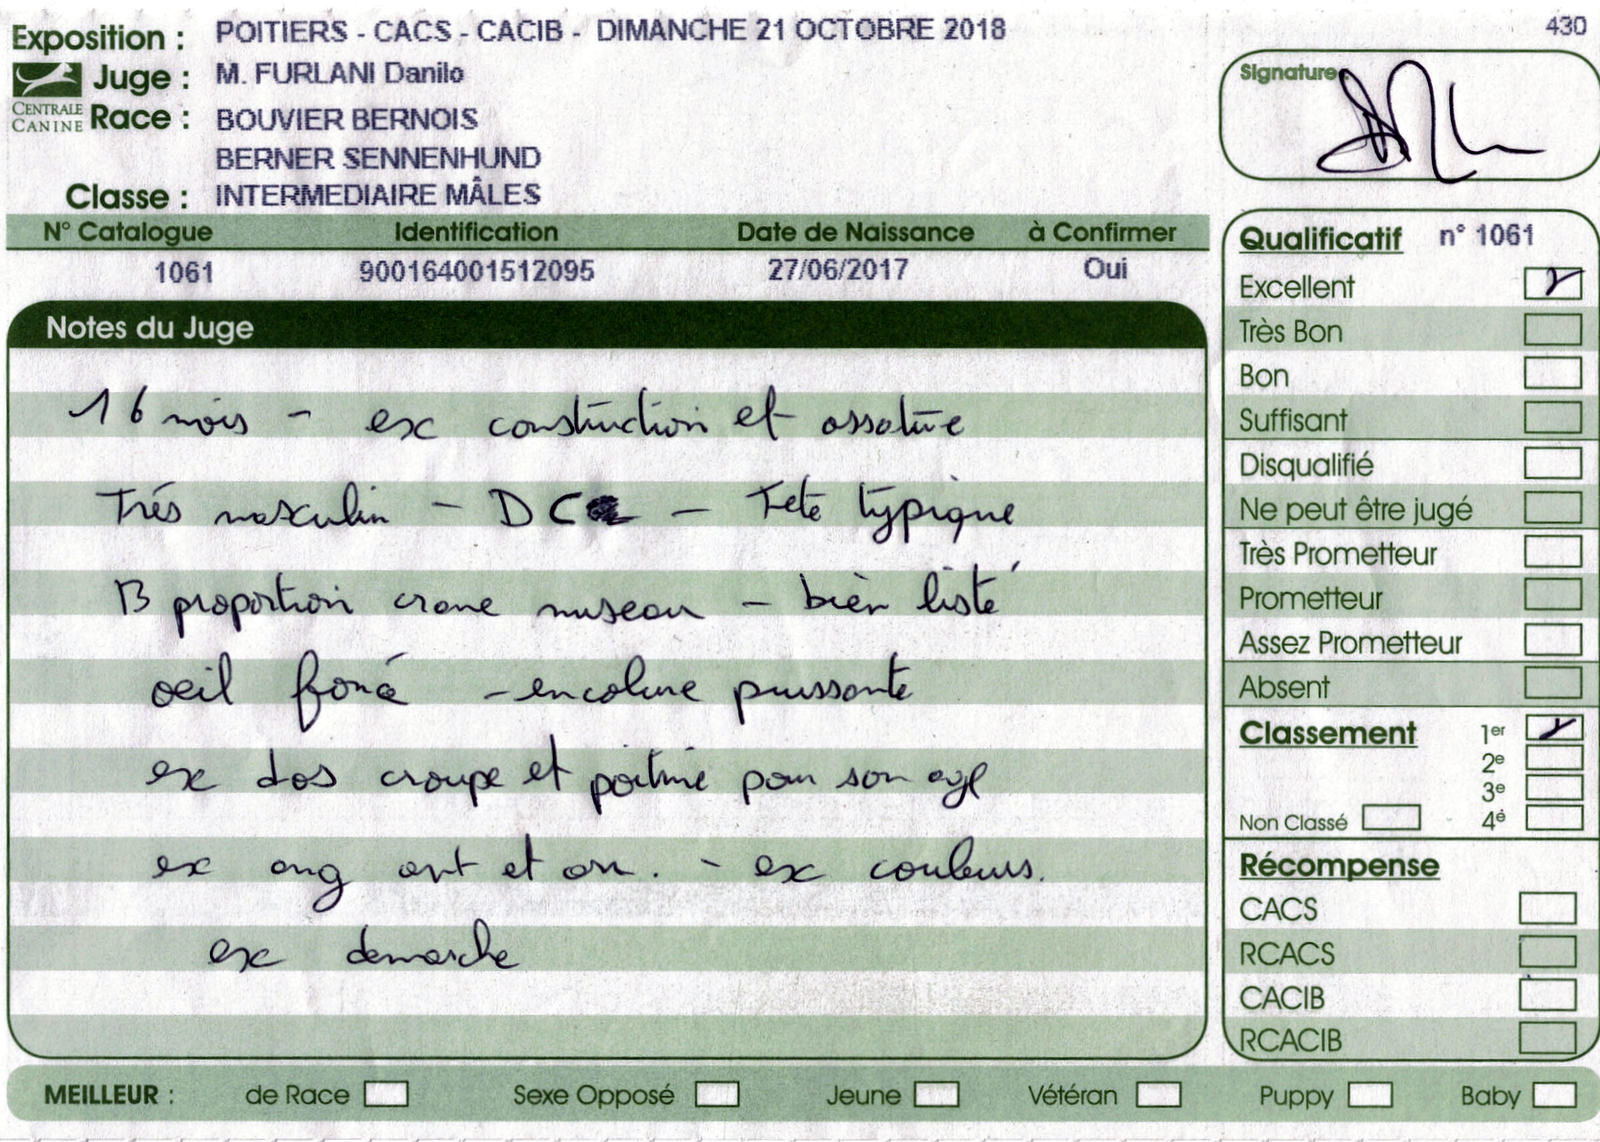 Exposition : POITIERS - CACS - CACIB - DIMANCHE 21 OCTOBRE 2018
430
CENTRALE CANINE
Juge : M. FURLANI Danilo
Race : BOUVIER BERNOIS
BERNER SENNENHUND
Classe : INTERMEDIAIRE MÂLES
Signature
N° Catalogue Identification Date de Naissance à Confirmer
1061 900164001512095 27/06/2017 Oui
Notes du Juge
16 mois - ex construction et ossature
Trés masculin - DC - Tete typique
B proportion crane museau - bien listé
oeil foncé - encolure puissante
ex dos croupe et poitrine pour son age
ex ang ant et arr. - ex couleurs.
ex demarche
Qualificatif n° 1061
Excellent
Très Bon
Bon
Suffisant
Disqualifié
Ne peut être jugé
Très Prometteur
Prometteur
Assez Prometteur
Absent
Classement 1er
2e
3e
Non Classé 4e
Récompense
CACS
RCACS
CACIB
RCACIB
MEILLEUR : de Race Sexe Opposé Jeune Vétéran Puppy Baby